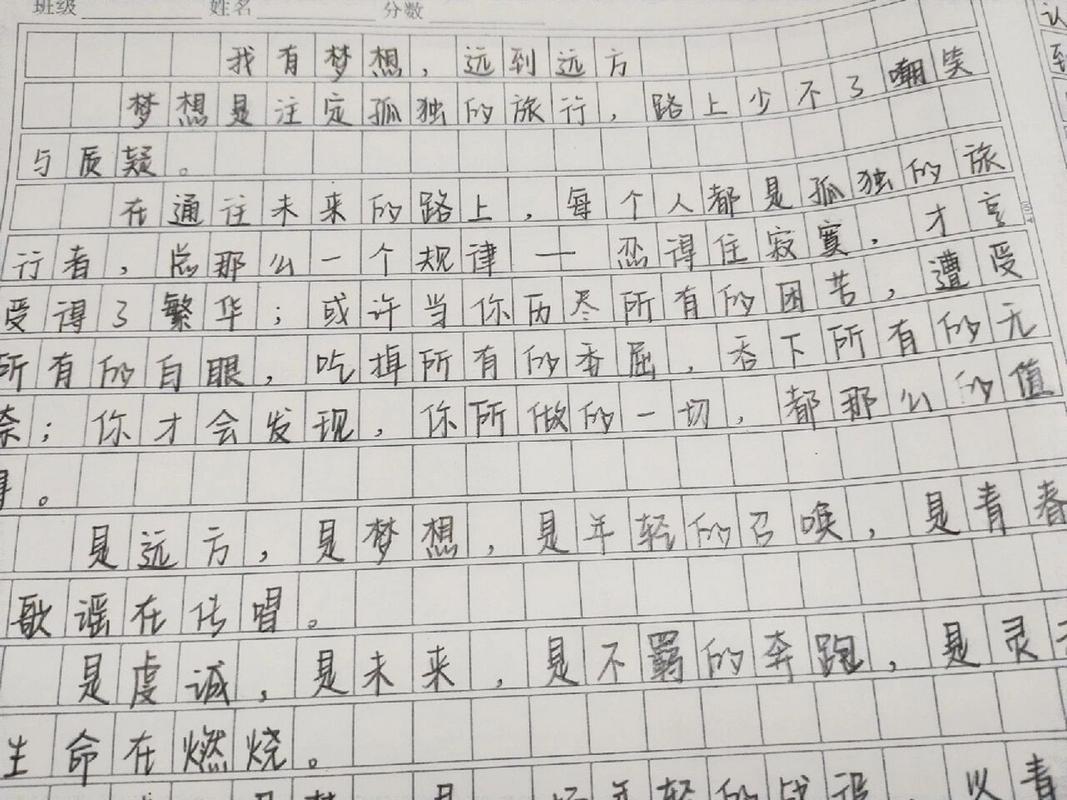 班级 姓名 分数
我有梦想，远到远方
梦想是注定孤独的旅行，路上少不了嘲笑
与质疑。
在通往未来的路上，每个人都是孤独的旅
行者，总那么一个规律——忍得住寂寞，才享
受得了繁华；或许当你历尽所有的困苦，遭受
所有的白眼，吃掉所有的委屈，吞下所有的无
奈；你才会发现，你所做的一切，都那么的值
得。
是远方，是梦想，是年轻的召唤，是青春
歌谣在传唱。
是虔诚，是未来，是不羁的奔跑，是灵
生命在燃烧。
是 年轻的战 以青
认
到